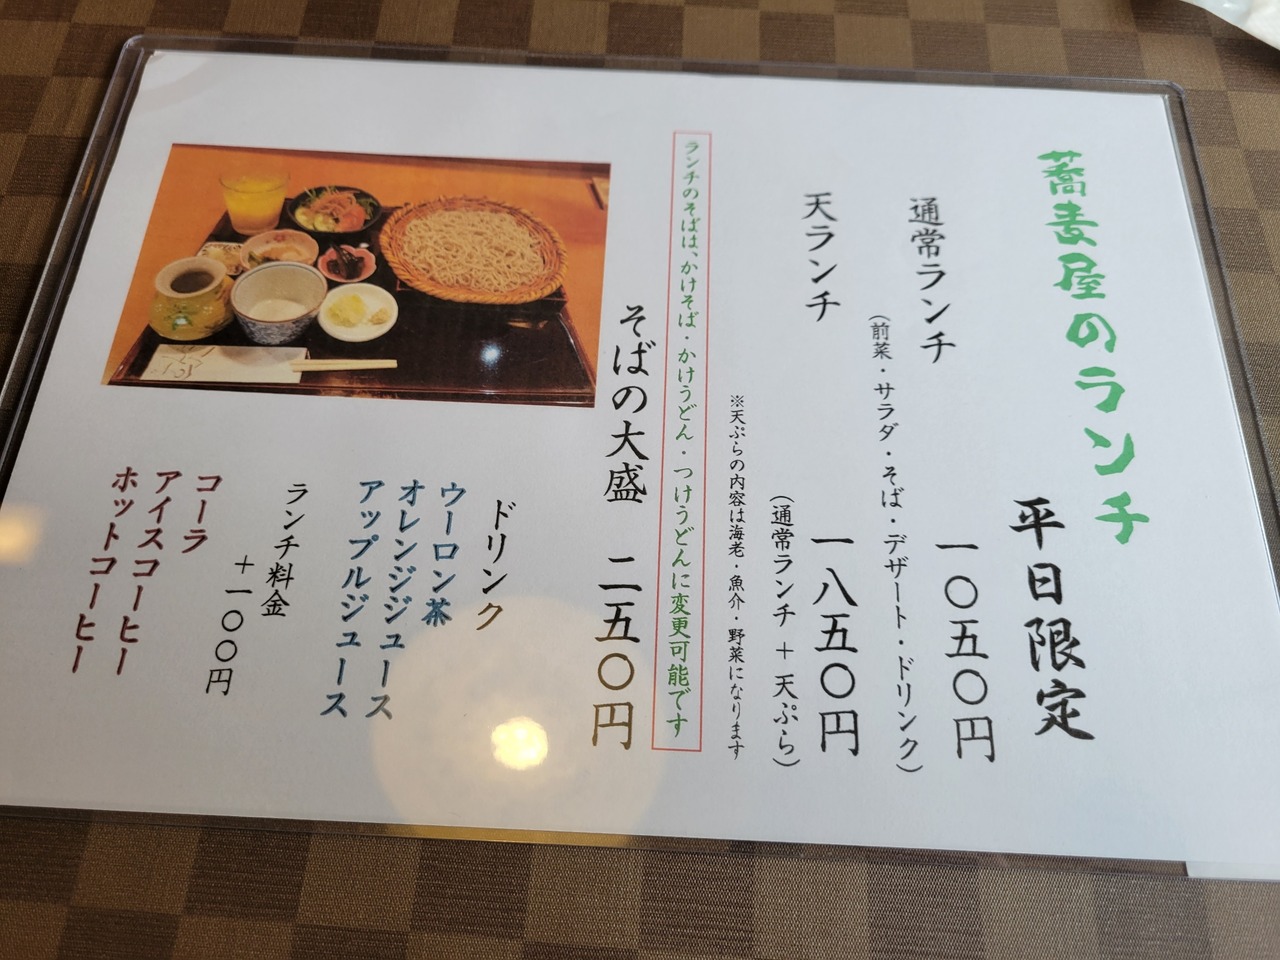 蕎麦屋のランチ
平日限定
通常ランチ 一〇五〇円
（前菜・サラダ・そば・デザート・ドリンク）
天ランチ 一八五〇円
（通常ランチ＋天ぷら）
※天ぷらの内容は海老・魚介・野菜になります
ランチのそばは、かけそば・かけうどん・つけうどんに変更可能です
そばの大盛 二五〇円
ドリンク
ウーロン茶
オレンジジュース
アップルジュース
ランチ料金
＋一〇〇円
コーラ
アイスコーヒー
ホットコーヒー